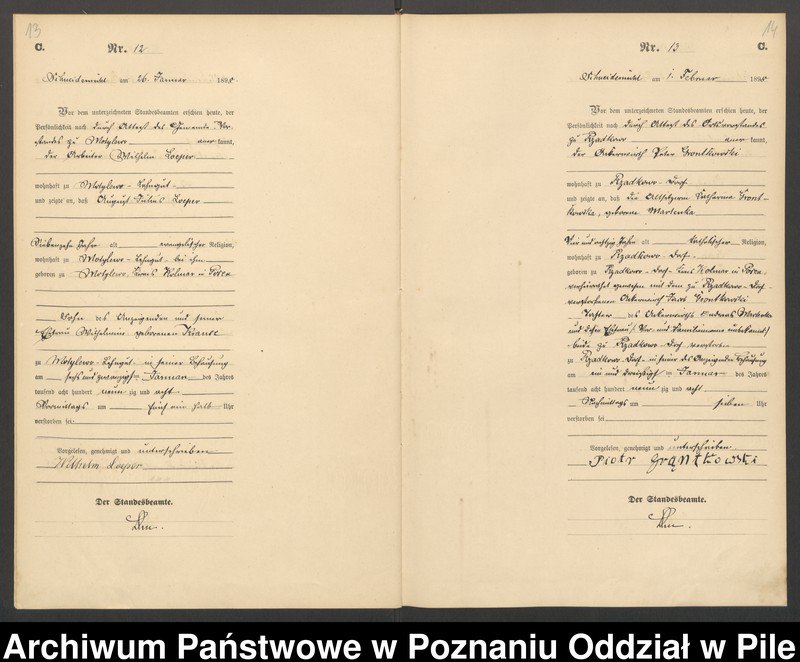 13
C.
Nr. 12
Schneidemühl am 26. Januar 1898
Vor dem unterzeichneten Standesbeamten erschien heute, der
Persönlichkeit nach durch Attest des Gemeinde-Vor-
standes zu Motylewo anerkannt,
der Arbeiter Wilhelm Loeper
wohnhaft zu Motylewo-Lehngut
und zeigte an, daß August Julius Loeper
Siebenzehn Jahr alt evangelischer Religion,
wohnhaft zu Motylewo-Lehngut bei ihm
geboren zu Motylewo Kreis Kolmar in Posen
Sohn des Anzeigenden und seiner
Ehefrau Wilhelmine geborenen Krause
zu Motylewo-Lehngut in seiner Behausung
am sechs und zwanzigsten Januar des Jahres
tausend acht hundert neunzig und acht
Vormittags um fünf ein halb Uhr
verstorben sei.
Vorgelesen, genehmigt und unterschrieben
Wilhelm Loeper
Der Standesbeamte.
14
C.
Nr. 13
Schneidemühl am 1. Februar 1898
Vor dem unterzeichneten Standesbeamten erschien heute, der
Persönlichkeit nach durch Attest des Ortsvorstandes
zu Rzadkowo anerkannt,
der Ackerwirth Peter Grontkowski
wohnhaft zu Rzadkowo-Dorf
und zeigte an, daß die Altsitzerin Katharina Gront-
kowska, geborene Marlenka
Vier und achtzig Jahr alt katholischer Religion,
wohnhaft zu Rzadkowo-Dorf
geboren zu Rzadkowo-Dorf Kreis Kolmar in Posen
verheirathet gewesen mit dem zu Rzadkowo-Dorf
verstorbenen Ackerwirth Grontkowski
Tochter des Ackerwirths Andreas Marlenka
und dessen Ehefrau, Vor- und Familienname unbekannt,
beide zu Rzadkowo-Dorf verstorben
zu Rzadkowo-Dorf in seiner des Anzeigenden Behausung
am ein und dreißigsten Januar des Jahres
tausend acht hundert neunzig und acht
Nachmittags um sieben Uhr
verstorben sei
Vorgelesen, genehmigt und unterschrieben
Piotr Grątkowski
Der Standesbeamte.
Archiwum Państwowe w Poznaniu Oddział w Pile